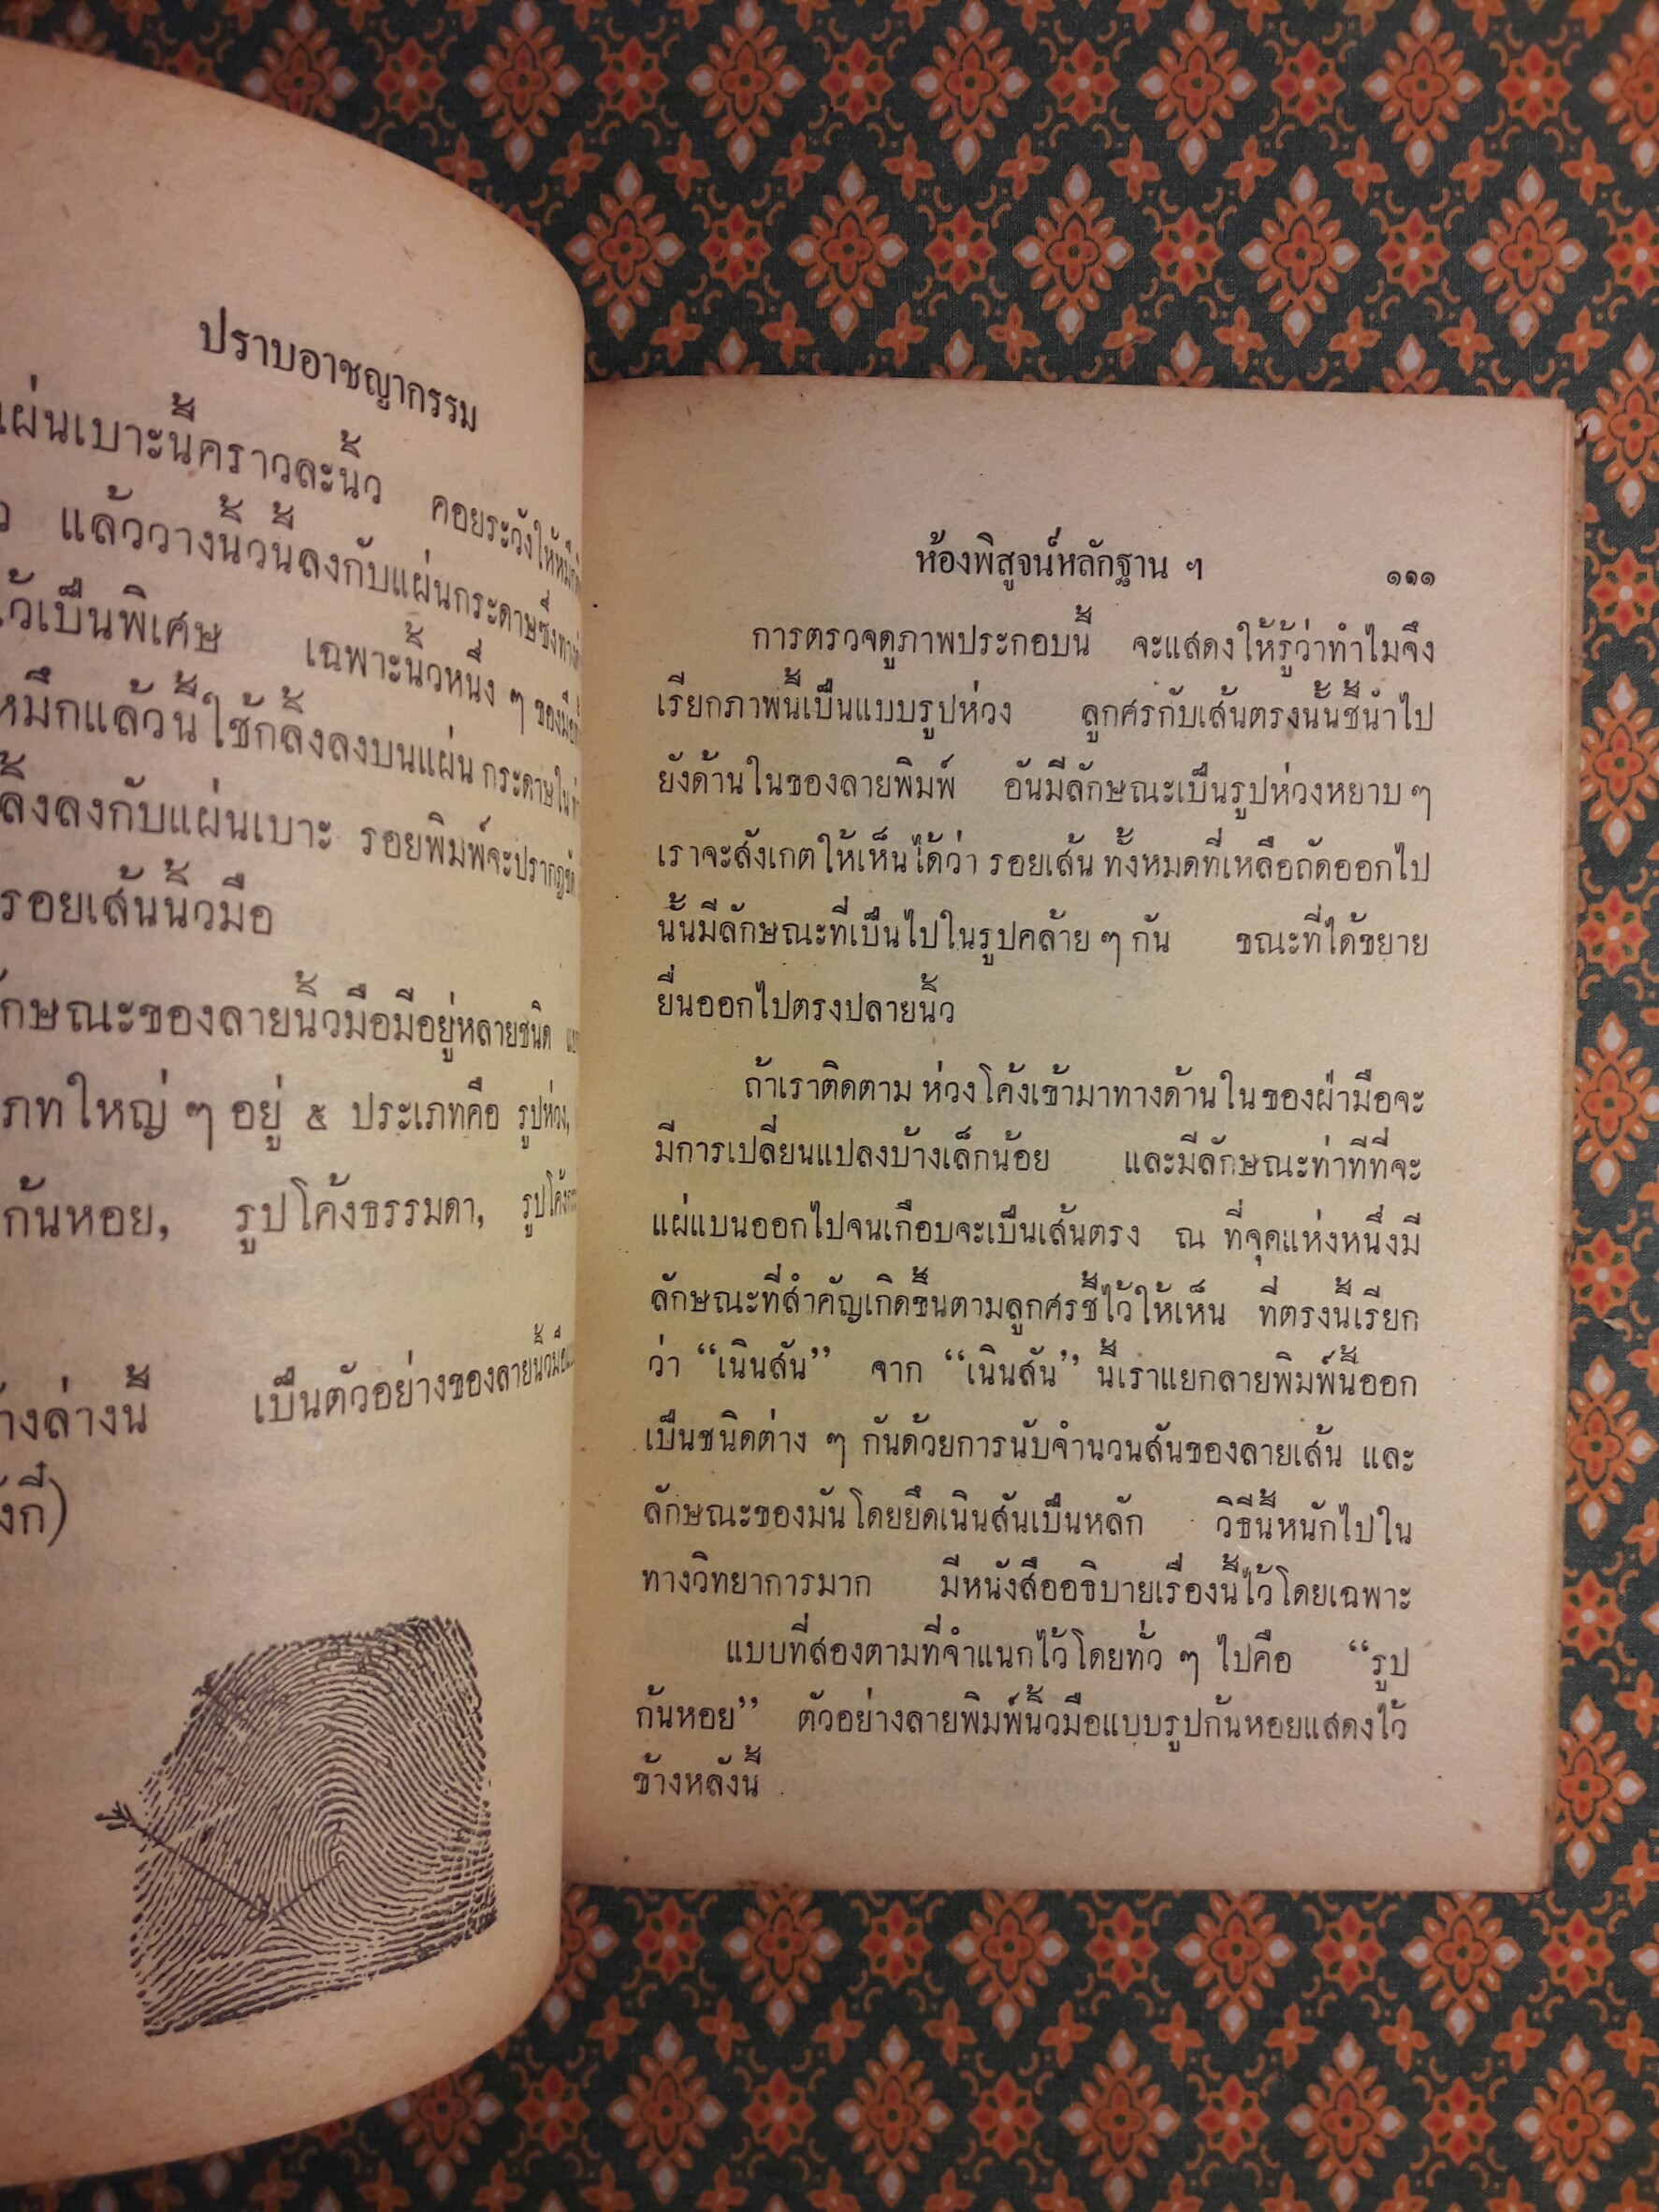 ปราบอาชญากรรม
แผ่นเบาะนี้คราวละนิ้ว คอยระวังให้หมึก
แล้ววางนิ้วนี้ลงกับแผ่นกระดาษซึ่งทาง
ไว้เป็นพิเศษ เฉพาะนิ้วหนึ่ง ๆ ของมือ
หมึกแล้วนี้ใช้กลิ้งลงบนแผ่น กระดาษใน
ลิ้งลงกับแผ่นเบาะ รอยพิมพ์จะปรากฏชัด
รอยเส้นนิ้วมือ
ักษณะของลายนิ้วมือมีอยู่หลายชนิด
ภทใหญ่ ๆ อยู่ ๕ ประเภทคือ รูปห่วง,
ก้นหอย, รูปโค้งธรรมดา, รูปโค้ง
างล่างนี้ เป็นตัวอย่างของลายนิ้วมือ
ังกี๋)
ห้องพิสูจน์หลักฐาน ๆ ๑๑๑
การตรวจดูภาพประกอบนี้ จะแสดงให้รู้ว่าทำไมจึง
เรียกภาพนี้เป็นแบบรูปห่วง ลูกศรกับเส้นตรงนั้นชี้นำไป
ยังด้านในของลายพิมพ์ อันมีลักษณะเป็นรูปห่วงหยาบ ๆ
เราจะสังเกตให้เห็นได้ว่า รอยเส้น ทั้งหมดที่เหลือถัดออกไป
นั้นมีลักษณะที่เป็นไปในรูปคล้าย ๆ กัน ขณะที่ได้ขยาย
ยื่นออกไปตรงปลายนิ้ว
ถ้าเราติดตาม ห่วงโค้งเข้ามาทางด้านในของฝ่ามือจะ
มีการเปลี่ยนแปลงบ้างเล็กน้อย และมีลักษณะท่าทีที่จะ
แผ่แบนออกไปจนเกือบจะเป็นเส้นตรง ณ ที่จุดแห่งหนึ่งมี
ลักษณะที่สำคัญเกิดขึ้นตามลูกศรชี้ไว้ให้เห็น ที่ตรงนี้เรียก
ว่า “เนินสัน” จาก “เนินสัน” นี้เราแยกลายพิมพ์นี้ออก
เป็นชนิดต่าง ๆ กันด้วยการนับจำนวนสันของลายเส้น และ
ลักษณะของมันโดยยึดเนินสันเป็นหลัก วิธีนี้หนักไปใน
ทางวิทยาการมาก มีหนังสืออธิบายเรื่องนี้ไว้โดยเฉพาะ
แบบที่สองตามที่จำแนกไว้โดยทั่ว ๆ ไปคือ “รูป
ก้นหอย” ตัวอย่างลายพิมพ์นิ้วมือแบบรูปก้นหอยแสดงไว้
ข้างหลังนี้